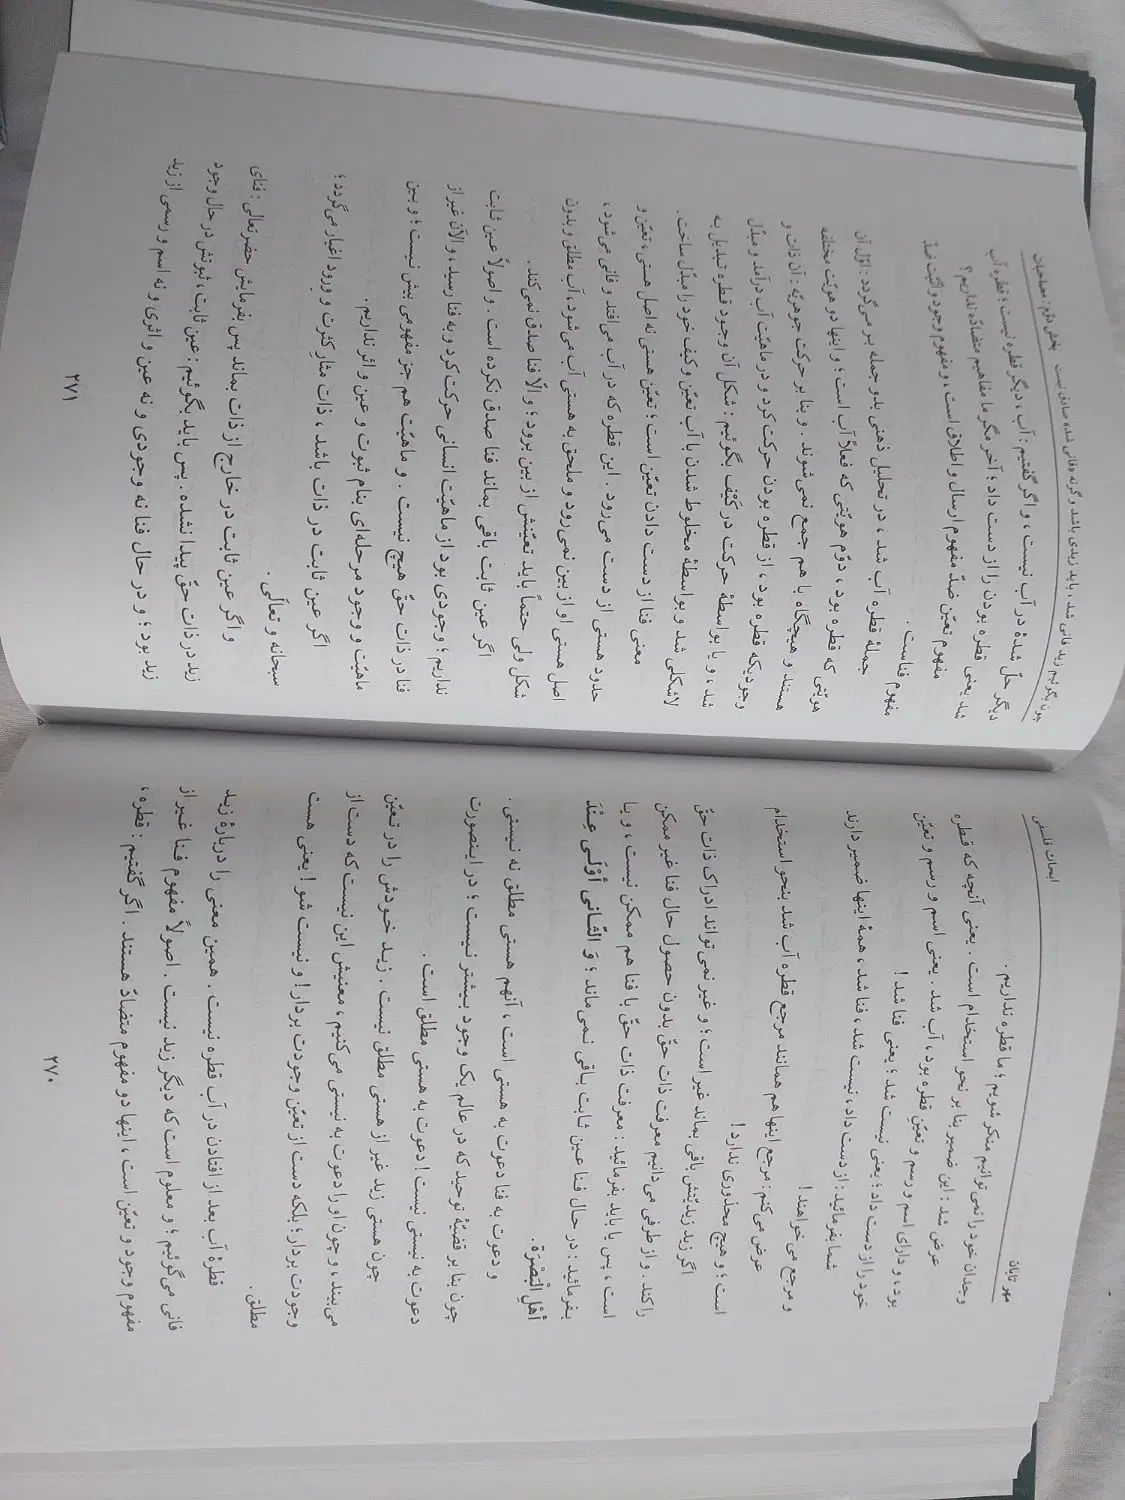 مهر تابان
ابحاث فلسفی
وجدان خود را نمی‌توانیم منکر شویم ؛ ما قطره نداریم .
عرض شد : این ضمیر بنا بر نحو استخدام است . یعنی آنچه که قطره
بود ، و دارای اسم و رسم و تعیّنِ قطره بود ، آب شد . یعنی اسم و رسم و تعیّن
خود را از دست داد ؛ یعنی نیست شد ؛ یعنی فنا شد !
شما بفرمائید : از دست داد ، نیست شد ، فنا شد ، همۀ اینها ضمیر دارند
و مرجع می‌خواهند !
عرض می‌کنم : مرجع اینها هم همانند مرجع قطره آب شد بنحو استخدام
است ؛ و هیچ محذوری ندارد !
اگر زید زیدیّتش باقی بماند غیر است ؛ و غیر نمی‌تواند ادراک ذات حقّ
را کند . و از طرفی می‌دانیم معرفت ذات حقّ بدون حصول حال فنا غیر ممکن
است ، پس یا باید بفرمائید : معرفت ذات حقّ با فنا هم ممکن نیست ، و یا
بفرمائید : در حال فنا عین ثابت باقی نمی‌ماند ؛ وَ الثّانی أوْلَی عِنْدَ
أهْلِ الْبَصْرَة .
و دعوت به فنا دعوت به هستی است ، آنهم هستی مطلق نه نیستی .
چون بنا بر قضیّۀ توحید که در عالم یک وجود بیشتر نیست ؛ در اینصورت
دعوت به نیستی نیست ! دعوت به هستی مطلق است .
چون هستی زید غیر از هستی مطلق نیست . زید خودش را در تعیّن
می‌بیند ، و چون او را دعوت به نیستی می‌کنیم ، معنیش این نیست که دست از
وجودت بردار ؛ بلکه دست از تعیّن وجودت بردار ! و نیست شو ! یعنی هست
مطلق .
قطرۀ آب بعد از افتادن در آب قطره نیست . همین معنی را دربارۀ زید
فانی می‌گوئیم ؛ و معلوم است که دیگر زید نیست . اصولاً مفهوم فنا غیر از
مفهوم وجود و تعیّن است ، اینها دو مفهوم متضادّ هستند . اگر گفتیم : قطره ،
۲۷۰
بخش دوّم : مصاحبات
چون بگوئیم زید فانی شد ، باید زیدی باشد و گرنه «فانی شد» صادق نیست
دیگر حلّ شدۀ در آب نیست ، و اگر گفتیم : آب ، دیگر قطره نیست ؛ قطره آب
شد یعنی قطره بودن را از دست داد ؛ آخر مگر ما مفاهیم متضادّه نداریم ؟
مفهوم تعیّن ضدّ مفهوم ارسال و اطلاق است ، و مفهوم وجود و انّیّت ضدّ
مفهوم فناست .
جملۀ قطره آب شد ، در تحلیل ذهنی بدو جمله بر می‌گردد : اوّل آن
هویّتی که قطره بود ، دوّم هویّتی که فعلاً آب است ؛ و اینها دو هویّت مختلفه
هستند و هیچگاه با هم جمع نمی‌شوند . و بنا بر حرکت جوهریّه : آن ذات و
وجودیکه قطره بود ، از قطره بودن حرکت کرد و در ماهیّت آب درآمد و مبدّل
شد ، و یا بواسطۀ حرکت در کَیْف بگوئیم : شکل آن وجود قطره تبدیل به
لاشکلی شد و بواسطۀ مخلوط شدن با آب تعیّن و کیف خود را مبدّل ساخت .
معنی فنا از دست دادن تعیّن است ؛ تعیّن هستی نه اصل هستی ، تعیّن و
حدود هستی از دست می‌رود . این قطره که در آب می‌افتد و فانی می‌شود ،
اصل هستی او از بین نمی‌رود و ملحق به هستی آب می‌شود ، آب مطلق و بدون
شکل ولی حتماً باید تعیّنش از بین برود ؛ و الّا فنا صدق نمی‌کند .
اگر عین ثابت باقی بماند فنا صدق نکرده است . و اصولاً عین ثابت
نداریم ؛ وجودی بود از ماهیّت انسانی حرکت کرد و به فنا رسید ، و الآن غیر از
فنا در ذات حقّ هیچ نیست . و ماهیّت هم جز مفهومی بیش نیست ؛ و بین
ماهیّت و وجود مرحله‌ای بنام ثبوت و عین و اثر نداریم .
اگر عین ثابت در ذات باشد ، ذات مثار کثرت و ورود اغیار می‌گردد ؛
و اگر عین ثابت در خارج از ذات بماند پس بفرمایش حضرتعالی : فنای
سبحانه و تعالَی .
زید در ذات حقّ پیدا نشده . پس باید بگوئیم : عین ثابت ، ثبوتش در حال وجود
زید بود ؛ و در حال فنا نه وجودی و نه عین و اثری و نه اسم و رسمی از زید
۲۷۱